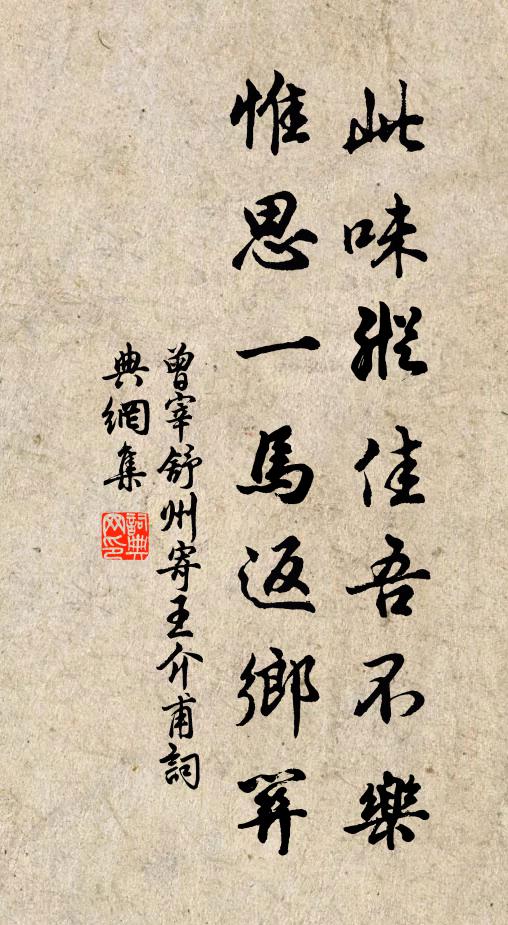 此味縱佳吾不樂
惟思一馬返鄉關
曾宰舒州寄王介甫詞
典網集
詞典
网印